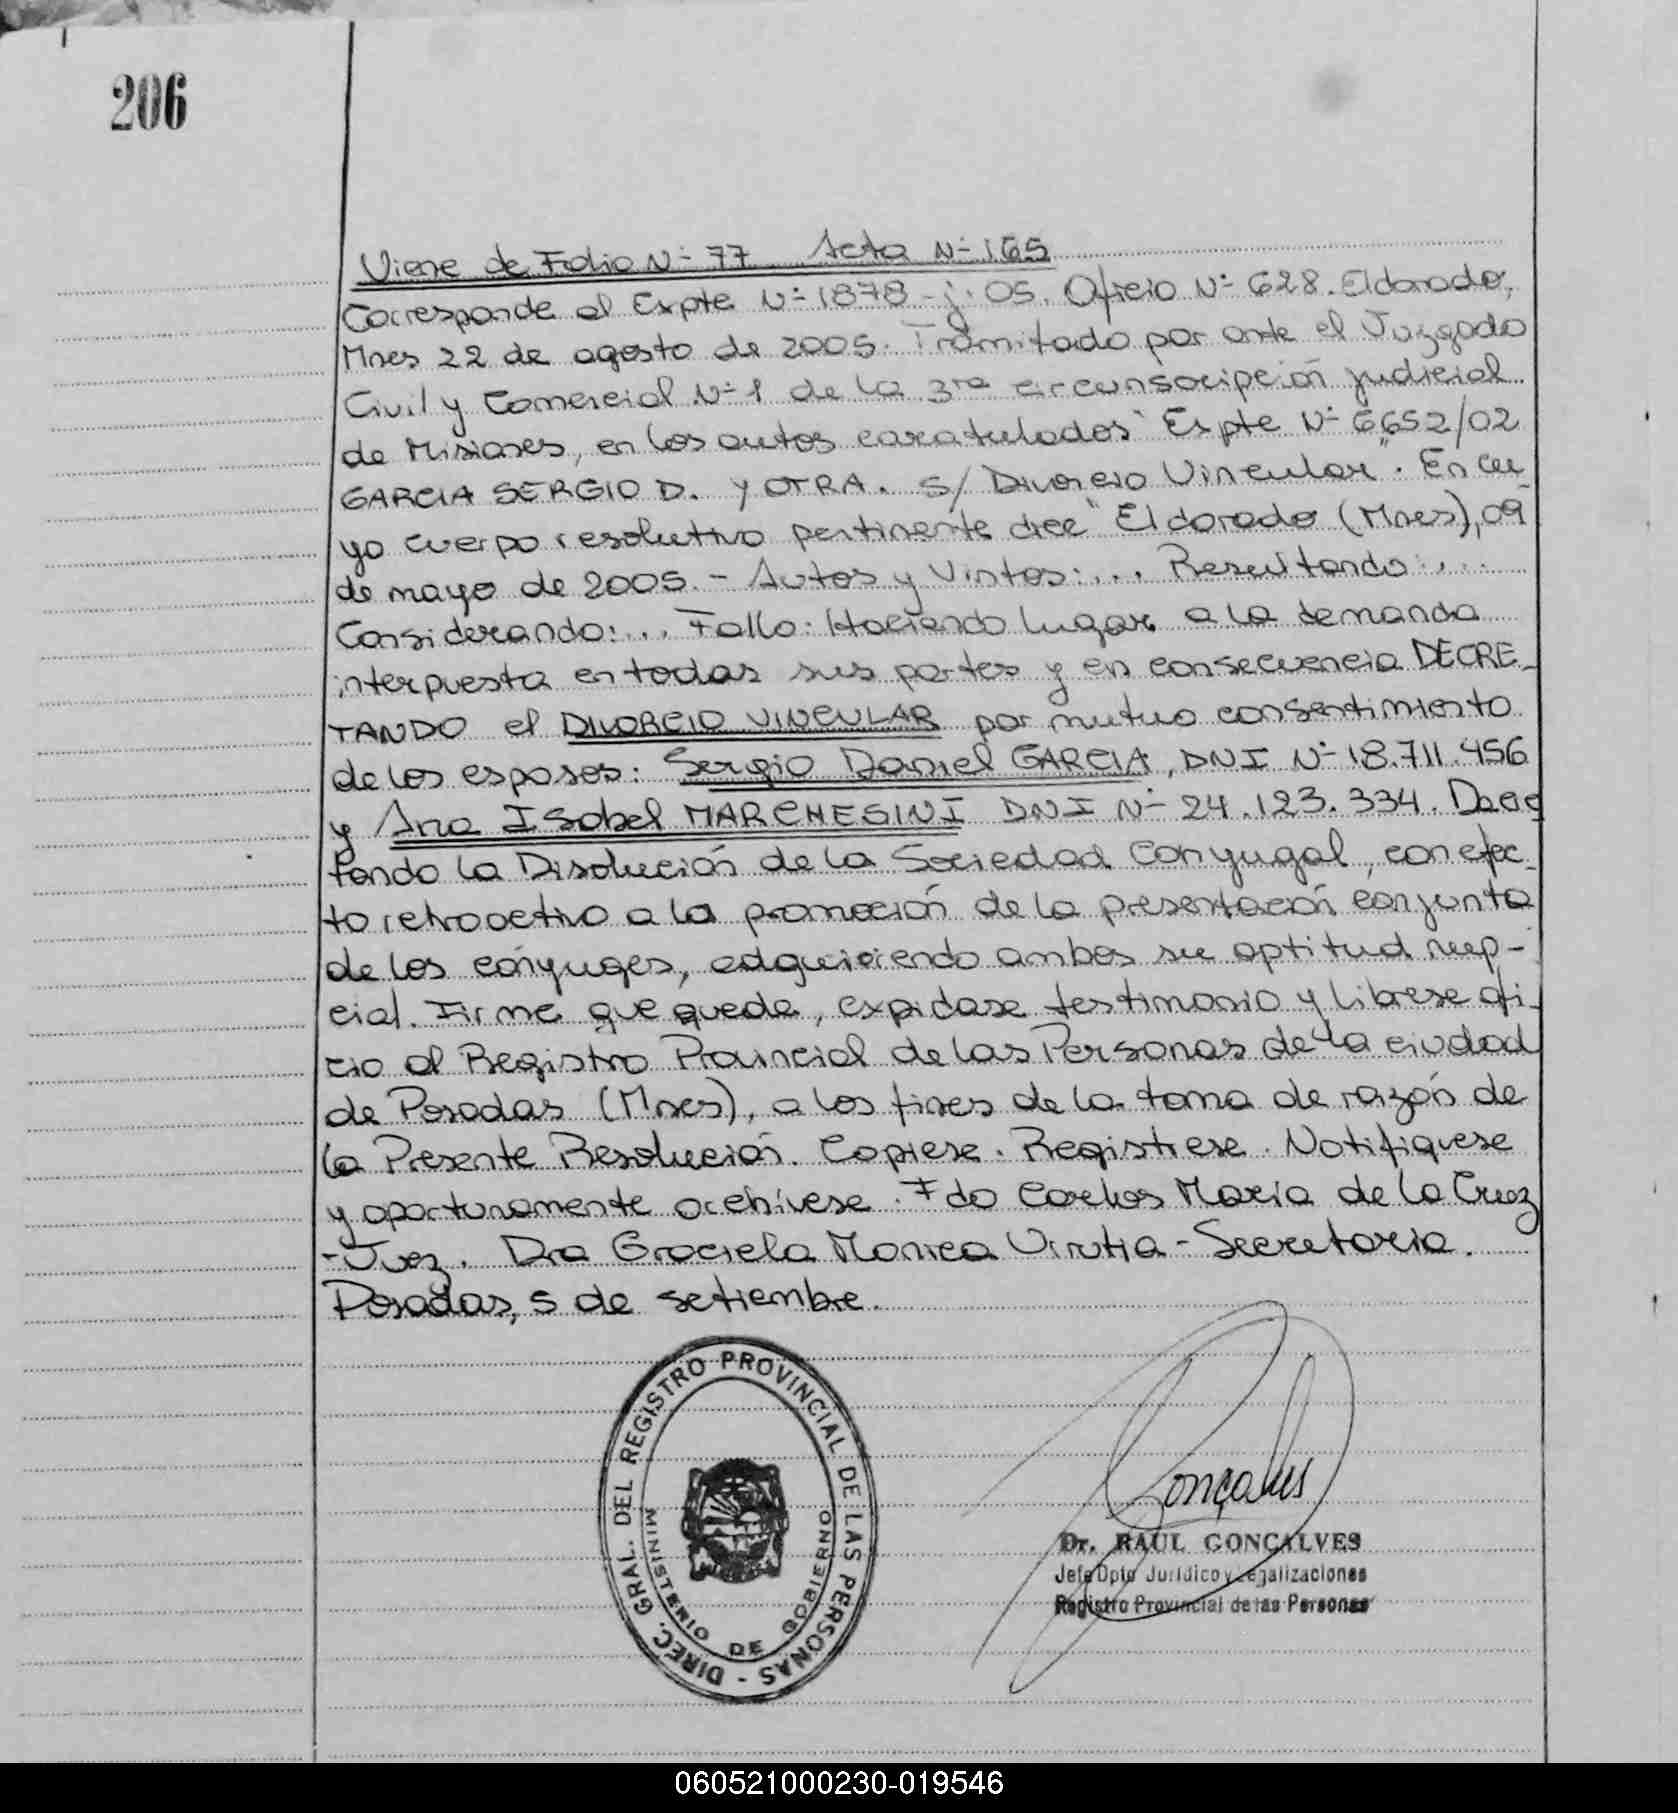 206
Viene de Folio Nº 77 Acta Nº 165
Corresponde al Expte Nº 1878-j-05. Oficio Nº 628. Eldorado,
Mnes 22 de agosto de 2005. Tramitado por ante el Juzgado
Civil y Comercial Nº 1 de la 3ra circunscripción judicial
de Misiones, en los autos caratulados "Expte Nº 6652/02
GARCIA SERGIO D. y OTRA. S/ Divorcio Vincular". En cu
yo cuerpo resolutivo pertinente dice "Eldorado (Mnes), 09
de mayo de 2005. - Autos y Vistos:... Resultando:...
Considerando:... Fallo: Haciendo lugar a la demanda
interpuesta en todas sus partes y en consecuencia DECRE-
TANDO el DIVORCIO VINCULAR por mutuo consentimiento
de los esposos: Sergio Daniel GARCIA, DNI Nº 18.711.456
y Ana Isabel MARCHESINI DNI Nº 24.123.334. Decre
tando la Disolución de la Sociedad Conyugal, con efec-
to retroactivo a la promoción de la presentación conjunta
de los cónyuges, adquiriendo ambos su aptitud nup-
cial. Firme que quede, expidase testimonio y librese ofi-
cio al Registro Provincial de las Personas de la ciudad
de Posadas (Mnes), a los fines de la toma de razón de
la Presente Resolución. Copiese. Registrese. Notifiquese
y oportunamente archívese. Fdo Carlos Maria de la Cruz
- Juez. Dra Graciela Monica Urrutia - Secretaria.
Posadas, 5 de setiembre.
DIREC. GRAL. DEL REGISTRO PROVINCIAL DE LAS PERSONAS -
MINISTERIO DE GOBIERNO
Gonçalves
Dr. RAUL GONÇALVES
Jefe Dpto Jurídico y Legalizaciones
Registro Provincial de las Personas
060521000230-019546